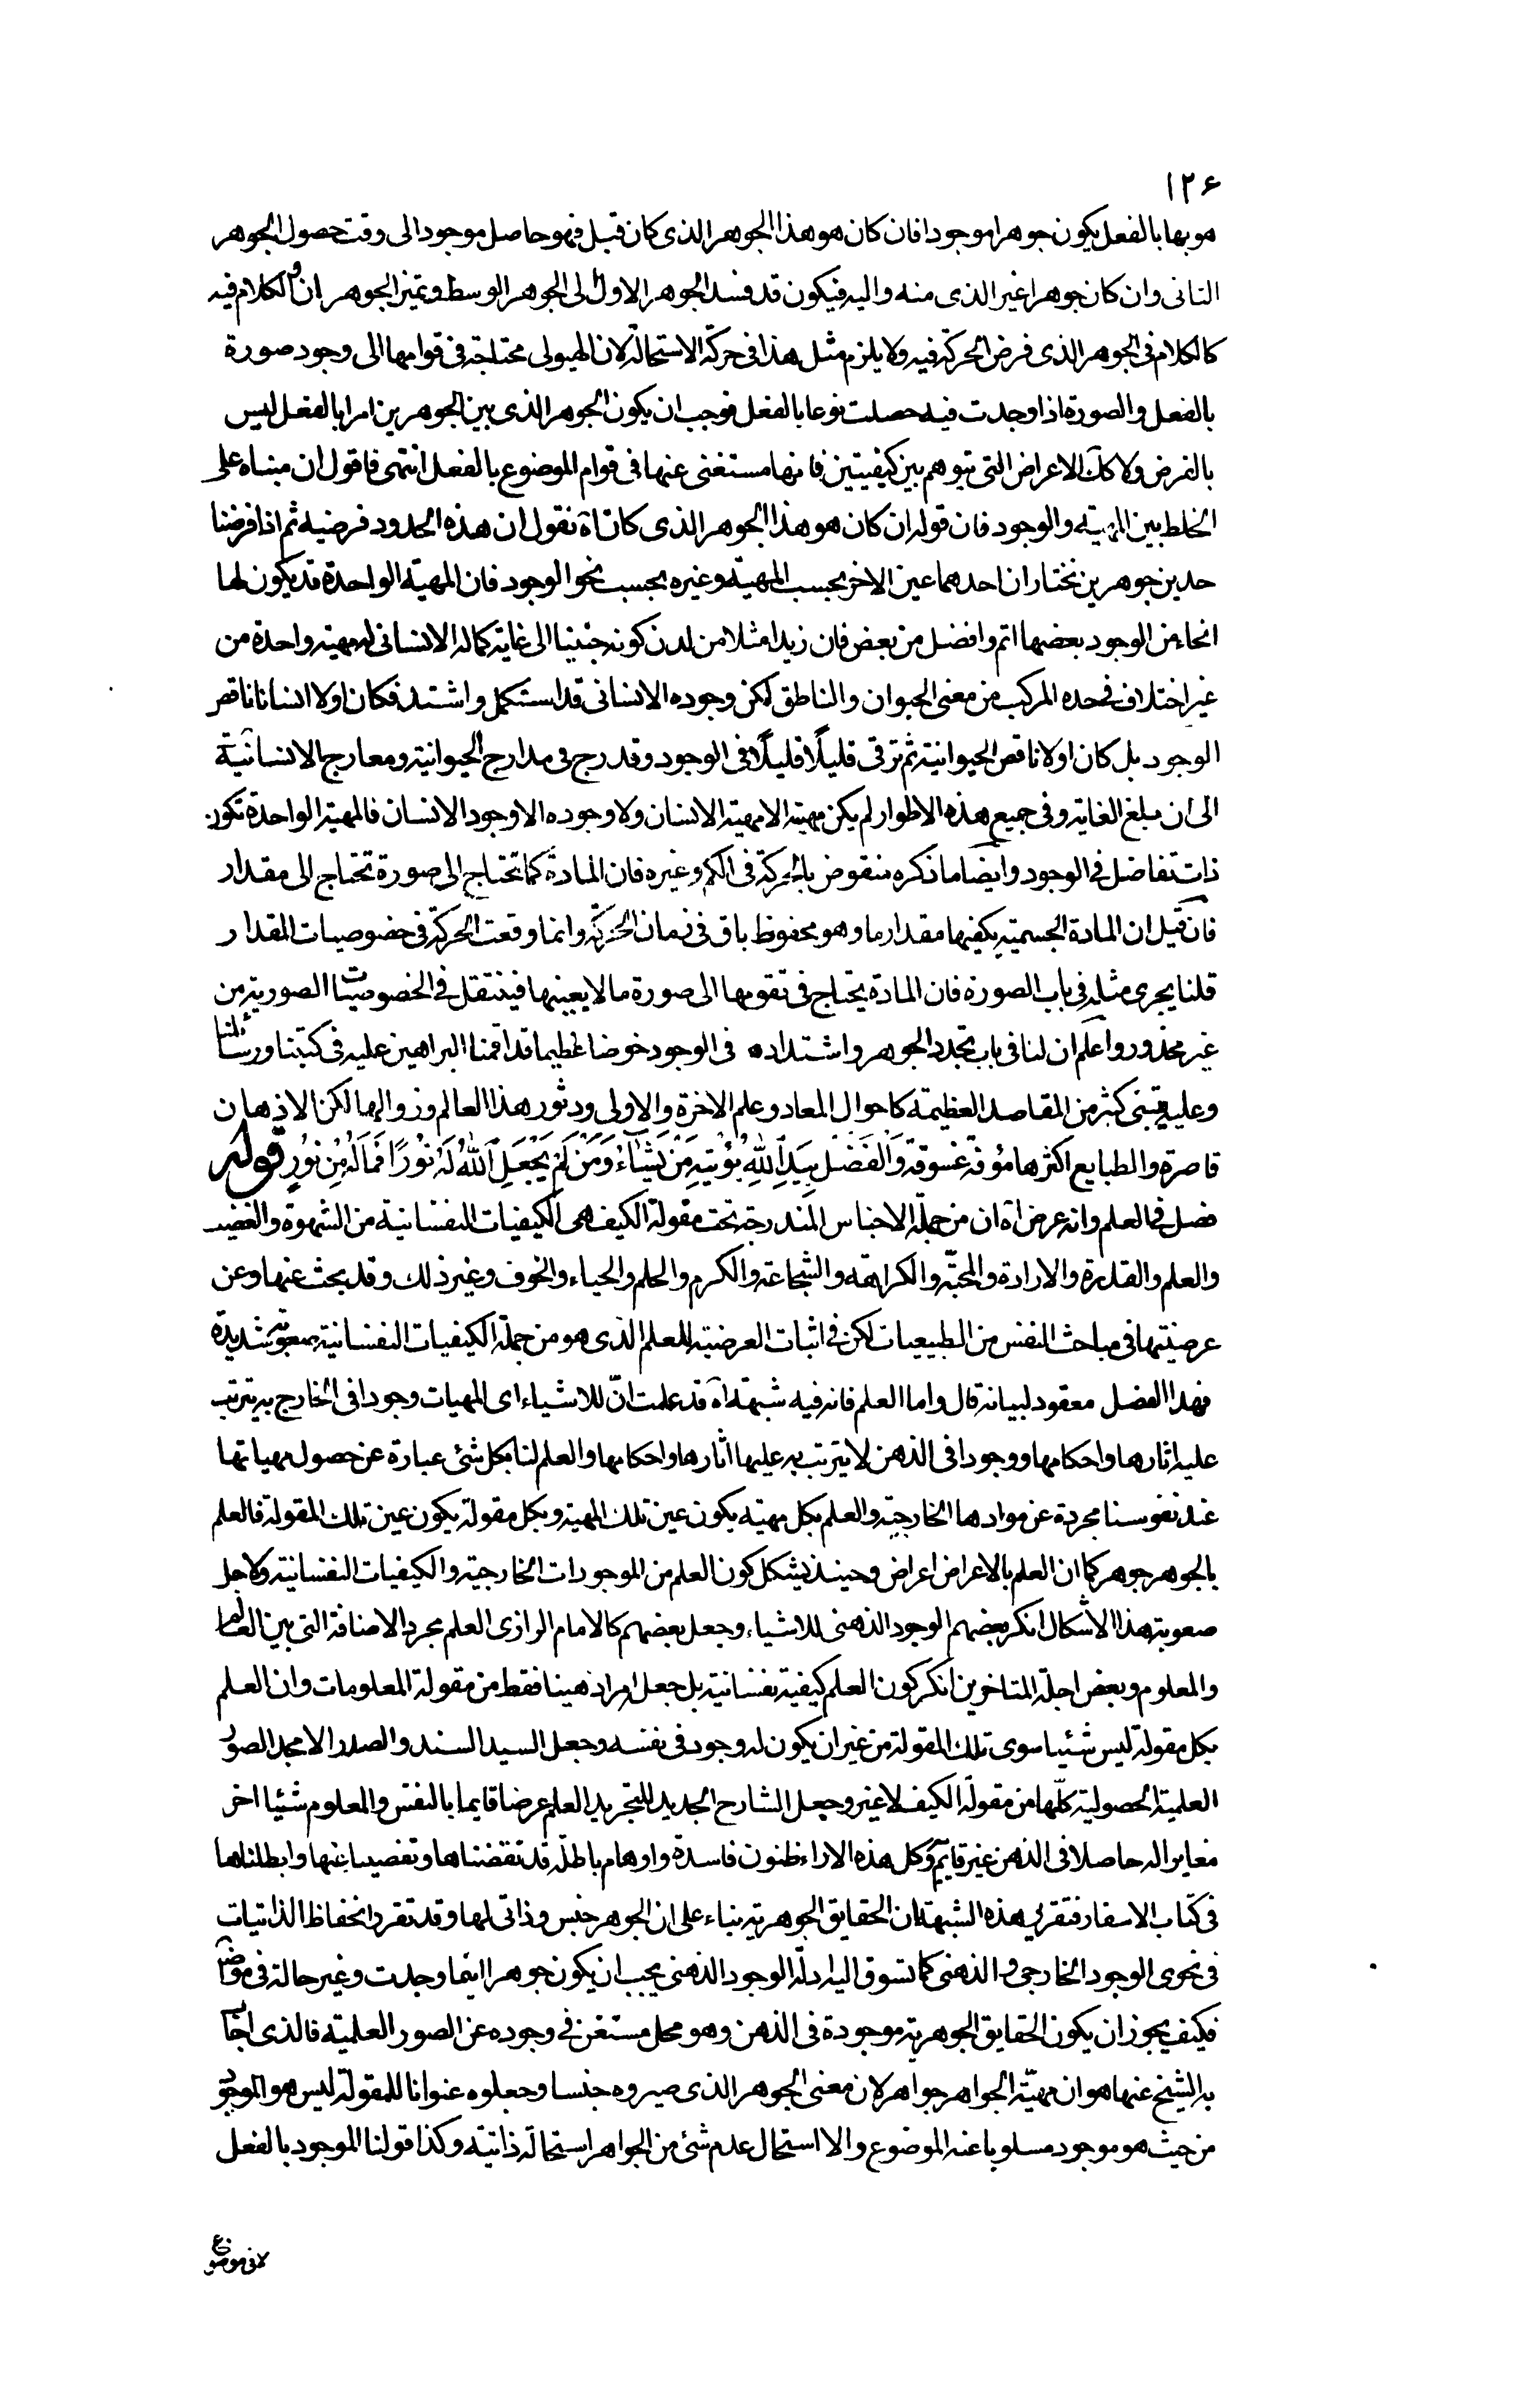 ۱۲۶
هو بها بالفعل يكون جوهرا موجودا فان كان هو هذا الجوهر الذى كان قبل فهو حاصل موجود الى وقت حصول الجوهر
الثانى وان كان جوهرا غير الذى منه واليه فيكون قد فسد الجوهر الاول الى الجوهر الوسط وتميز الجوهر ان والكلام فيه
كالكلام فى الجوهر الذى فرض الحركة فيه ولا يلزم مثل هذا فى حركة الاستحالة لان الهيولى محتاجة فى قوامها الى وجود صورة
بالفعل والصورة اذا وجدت فيه حصلت نوعا بالفعل فوجب ان يكون الجوهر الذى بين الجوهرين امرا بالفعل ليس
بالفرض ولا كك الاعراض التى يتوهم بين كيفيتين فانها مستغنى عنها فى قوام الموضوع بالفعل انتهى فاقول ان مبناه على
الخلط بين المهية والوجود فان قوله ان كان هو هذا الجوهر الذى كان اه نقول ان هذه الحدود فرضية ثم اذا فرضنا
حدين جوهرين نختار ان احدهما عين الاخر بحسب المهية وغيره بحسب نحو الوجود فان المهية الواحدة قد يكون لها
انحاء من الوجود بعضها اتم وافضل من بعض فان زيدا مثلا من لدن كونه جنينا الى غاية كماله الانسانى له مهية واحدة من
غير اختلاف فى حده المركب من معنى الحيوان والناطق لكن وجوده الانسانى قد استكمل واشتد فكان اولا انسانا ناقص
الوجود بل كان اولا ناقص الحيوانية ثم ترقى قليلًا قليلًا فى الوجود وتدرج فى مدارج الحيوانية ومعارج الانسانية
الى ان بلغ الغاية وفى جميع هذه الاطوار لم يكن مهيته الا مهية الانسان ولا وجوده الا وجود الانسان فالمهية الواحدة تكون
ذات تفاضل فى الوجود وايضا ما ذكره منقوض بالحركة فى الكم وغيره فان المادة كما تحتاج الى صورة تحتاج الى مقدار
فان قيل ان المادة الجسمية يكفيها مقدار ما وهو محفوظ باق فى زمان الحركة وانما وقعت الحركة فى خصوصيات المقدار
قلنا يجرى مثله فى باب الصورة فان المادة يحتاج فى تقومها الى صورة ما لا بعينها فينتقل فى الخصوصيات الصورية من
غير محذور واعلم ان لنا فى باب تجدد الجوهر واشتداده فى الوجود خوضا عظيما قد اقمنا البراهين عليه فى كتبنا ورسائلنا
وعليه يبتنى كثير من المقاصد العظيمة كاحوال المعاد وعلم الاخرة والاولى ودثور هذا العالم وزوالها لكن الاذهان
قاصرة والطبايع اكثرها مؤفة غسوقة وَالْفَضْلُ بِيَدِ اللهِ يُؤْتِيهِ مَنْ يَشَاءُ وَمَنْ لَمْ يَجْعَلِ اللهُ لَهُ نُورًا فَمَا لَهُ مِنْ نُورٍ قوله
فصل فى العلم وانه عرض اه ان من جملة الاجناس المندرجة تحت مقولة الكيف هى الكيفيات النفسانية من الشهوة والغضب
والعلم والقدرة والارادة والمحبّة والكراهة والشجاعة والكرم والحلم والحياء والخوف وغير ذلك وقد يبحث عنها وعن
عرضيتها فى مباحث النفس من الطبيعيات لكن فى اثبات العرضية للعلم الذى هو من جملة الكيفيات النفسانية صعوبة شديدة
فهذا الفصل معقود لبيانه قال واما العلم فانه فيه شبهة اه قد علمت انّ للاشياء اى المهيات وجودا فى الخارج به يترتب
عليه اثارها واحكامها ووجودا فى الذهن لا يترتب به عليها اثارها واحكامها والعلم لنا بكل شئى عبارة عن حصول مهياتها
عند نفوسنا مجردة عن موادها الخارجية والعلم بكل مهية يكون عين تلك المهية وبكل مقولة يكون عين تلك المقولة فالعلم
بالجوهر جوهر كما ان العلم بالاعراض اعراض وحينئذ يشكل كون العلم من الموجودات الخارجية والكيفيات النفسانية ولاجل
صعوبة هذا الاشكال انكر بعضهم الوجود الذهنى للاشياء وجعل بعضهم كالامام الرازى العلم مجرد الاضافة التى بين العالم
والمعلوم وبعض اجلة المتاخرين انكر كون العلم كيفية نفسانية بل جعل امرا ذهنيا فقط من مقولة المعلومات وان العلم
بكل مقولة ليس شئيا سوى تلك المقولة من غير ان يكون له وجود فى نفسه وجعل السيد السند والصدر الامجد الصور
العلمية الحصولية كلّها من مقولة الكيف لا غير وجعل الشارح الجديد للتجريد العلم عرضا قايما بالنفس والمعلوم شيئا اخر
مغايرا له حاصلا فى الذهن غير قايم وكل هذه الاراء ظنون فاسدة واوهام باطلة قد نقضناها وتفصينا عنها وابطلناها
فى كتاب الاسفار فتقرير هذه الشبهة ان الحقايق الجوهرية بناء على ان الجوهر جنس وذاتى لها وقد تقرر انحفاظ الذاتيات
فى نحوى الوجود الخارجى والذهنى كما تسوق اليه ادلة الوجود الذهنى يجب ان يكون جوهرا اينما وجدت وغير حالة فى موضوع
فكيف يجوز ان يكون الحقايق الجوهرية موجودة فى الذهن وهو محل مستغن فى وجوده عن الصور العلمية فالذى اجاب
به الشيخ عنها هو ان مهيّة الجواهر جواهر لان معنى الجوهر الذى صيروه جنسا وجعلوه عنوانا للمقولة ليس هو الموجود
من حيث هو موجود مسلوبا عنه الموضوع والا استحال عدم شئى من الجواهر استحالة ذاتية وكذا قولنا الموجود بالفعل
لا فى موضوع